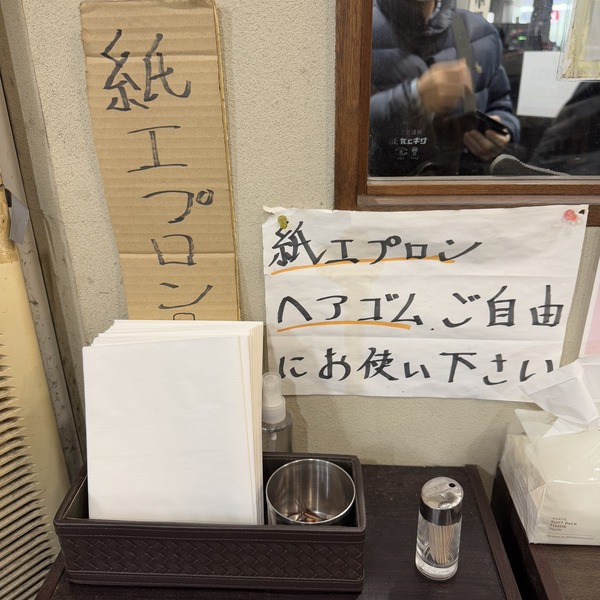 紙エプロン。
紙エプロン
ヘアゴム、ご自由
にお使い下さい
SOFT PACK
TISSUE